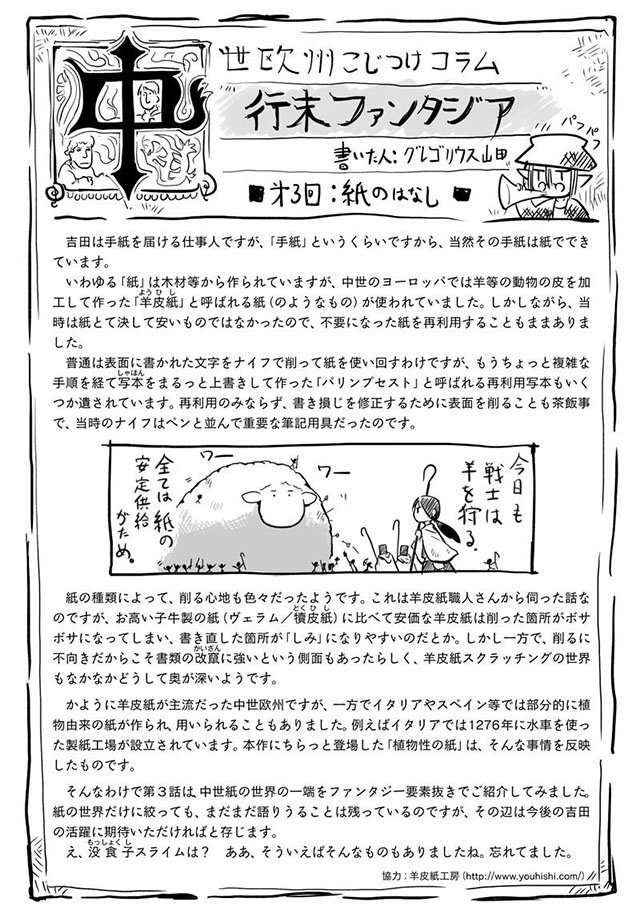 中世欧州こじつけコラム
行末ファンタジア
書いた人:グレゴリウス山田
パフパフ
■才3回:紙のはなし■
吉田は手紙を届ける仕事人ですが、「手紙」というくらいですから、当然その手紙は紙でできて
ています。
いわゆる「紙」は木材等から作られていますが、中世のヨーロッパでは羊等の動物の皮を加
工して作った「羊皮紙」と呼ばれる紙(のようなもの)が使われていました。しかしながら、当
時は紙とて決して安いものではなかったので、不要になった紙を再利用することもままありま
した。
普通は表面に書かれた文字をナイフで削って紙を使い回すわけですが、もうちょっと複雑な
手順を経て写本をまるっと上書きして作った「パリンプセスト」と呼ばれる再利用写本もいく
つか遺されています。再利用のみならず、書き損じを修正するために表面を削ることも茶飯事
で、当時のナイフはペンと並んで重要な筆記用具だったのです。
今日も
戦士は
羊を狩る。
?
ワー
ワー
全ては紙の
安定供給
がため。
紙の種類によって、削る心地も色々だったようです。これは羊皮紙職人さんから伺った話な
のですが、お高い子牛製の紙(ヴェラム/犢皮紙)に比べて安価な羊皮紙は削った箇所がボサ
ボサになってしまい、書き直した箇所が「しみ」になりやすいのだとか。しかし一方で、削るに
不向きだからこそ書類の改竄に強いという側面もあったらしく、羊皮紙スクラッチングの世界
もなかなかどうして奥が深いようです。
かように羊皮紙が主流だった中世欧州ですが、一方でイタリアやスペイン等では部分的に植
物由来の紙が作られ、用いられることもありました。例えばイタリアでは1276年に水車を使っ
た製紙工場が設立されています。本作にちらっと登場した「植物性の紙」は、そんな事情を反映
したものです。
そんなわけで第3話は、中世紙の世界の一端をファンタジー要素抜きでご紹介してみました。
紙の世界だけに絞っても、まだまだ語りうることは残っているのですが、その辺は今後の吉田
の活躍に期待いただければと存じます。
え、没食子スライムは? ああ、そういえばそんなものもありましたね。忘れてました。
協力:羊皮紙工房(http://www.youhishi.com/)